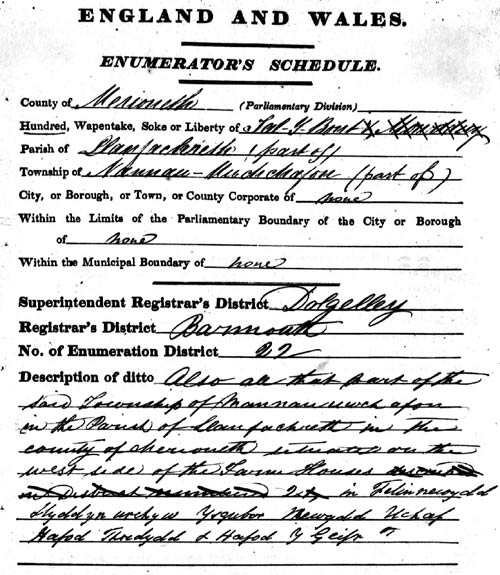 ENGLAND AND WALES.
ENUMERATOR'S SCHEDULE.
County of Merioneth (Parliamentary Division)
Hundred, Wapentake, Soke or Liberty of Tal Y Bont
Parish of Llanfachreth (part of)
Township of Nannau-Uwchafon (part of)
City, or Borough, or Town, or County Corporate of none
Within the Limits of the Parliamentary Boundary of the City or Borough
of none
Within the Municipal Boundary of none
Superintendent Registrar's District Dolgelley
Registrar's District Barmouth
No. of Enumeration District 22
Description of ditto Also all that part of the
said Township of Nannau uwch afon
in the Parish of Llanfachreth in the
county of Merioneth situated on the
west side of the Farm Houses
in Felinnewydd
Ysgubor Newydd Uchaf
Hafod & Hafod Y Geifr